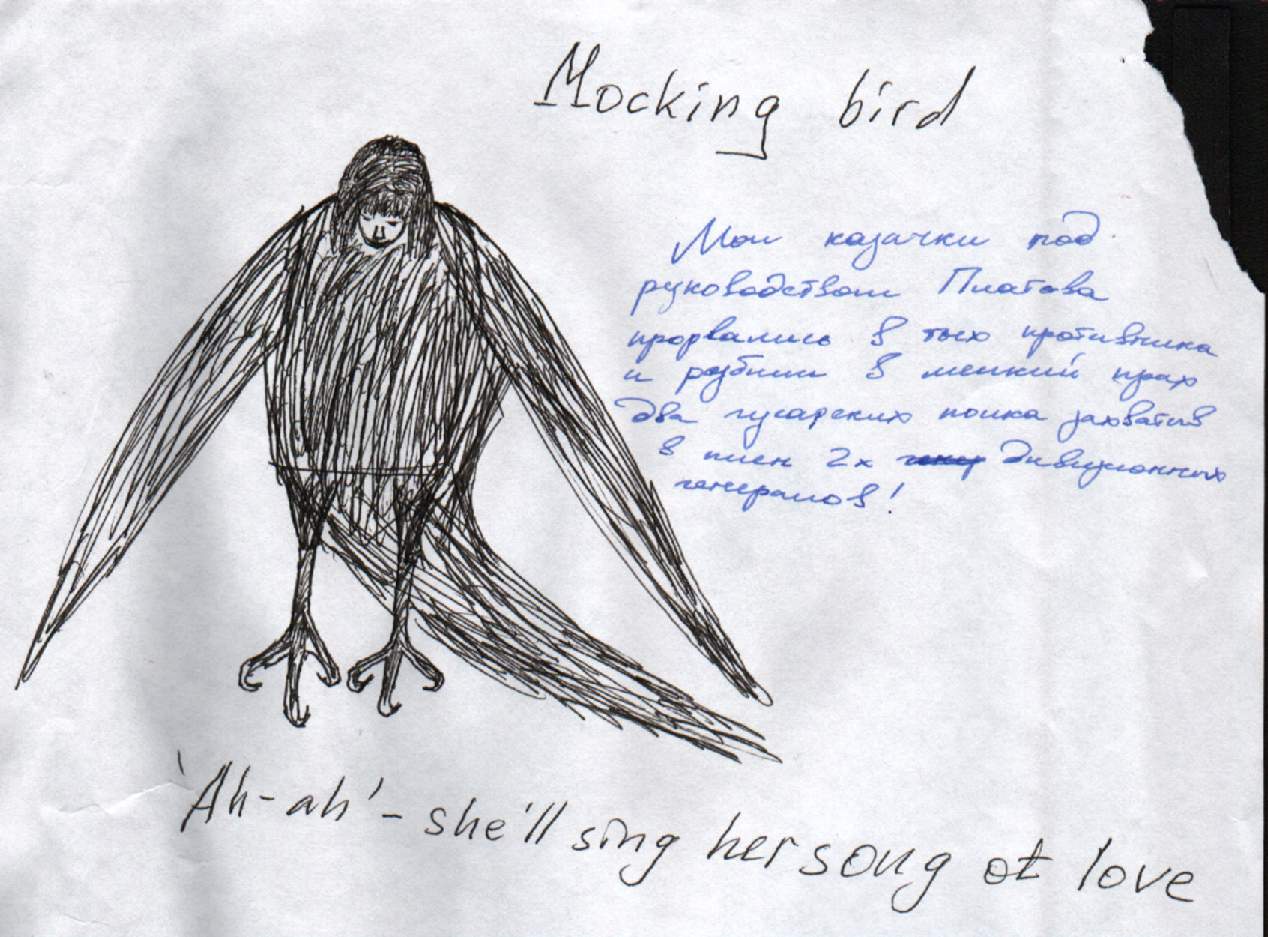 Mocking bird
Мои казачки под
руководством Платова
прорвались в тыл противника
и разбили в мелкий прах
два гусарских полка захватив
в плен 2х дивизионных
генералов!
'Ah-ah' - she'll sing her song of love